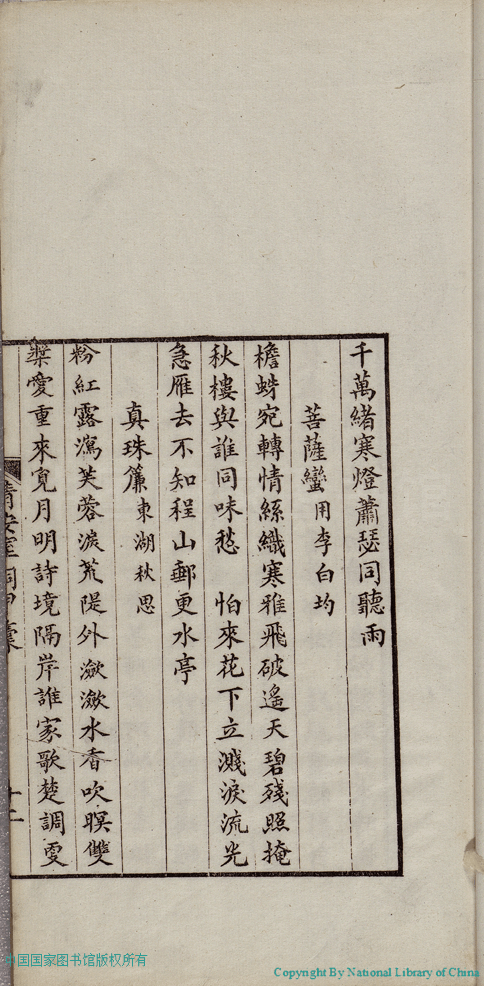 千萬緒寒燈蕭瑟同聽雨
菩薩蠻 用李白均
檐蛛宛轉情絲織寒雅飛破遙天碧殘照掩
秋樓與誰同味愁　怕來花下立濺淚流光
急雁去不知程山郵更水亭
真珠簾 東湖秋思
粉紅露瀉芙蓉淚荒隄外瀲瀲水香吹暝雙
槳愛重來覓月明詩境隔岸誰家歌楚調雯
詞
十二
中国国家图书馆版权所有
Copyright By National Library of China